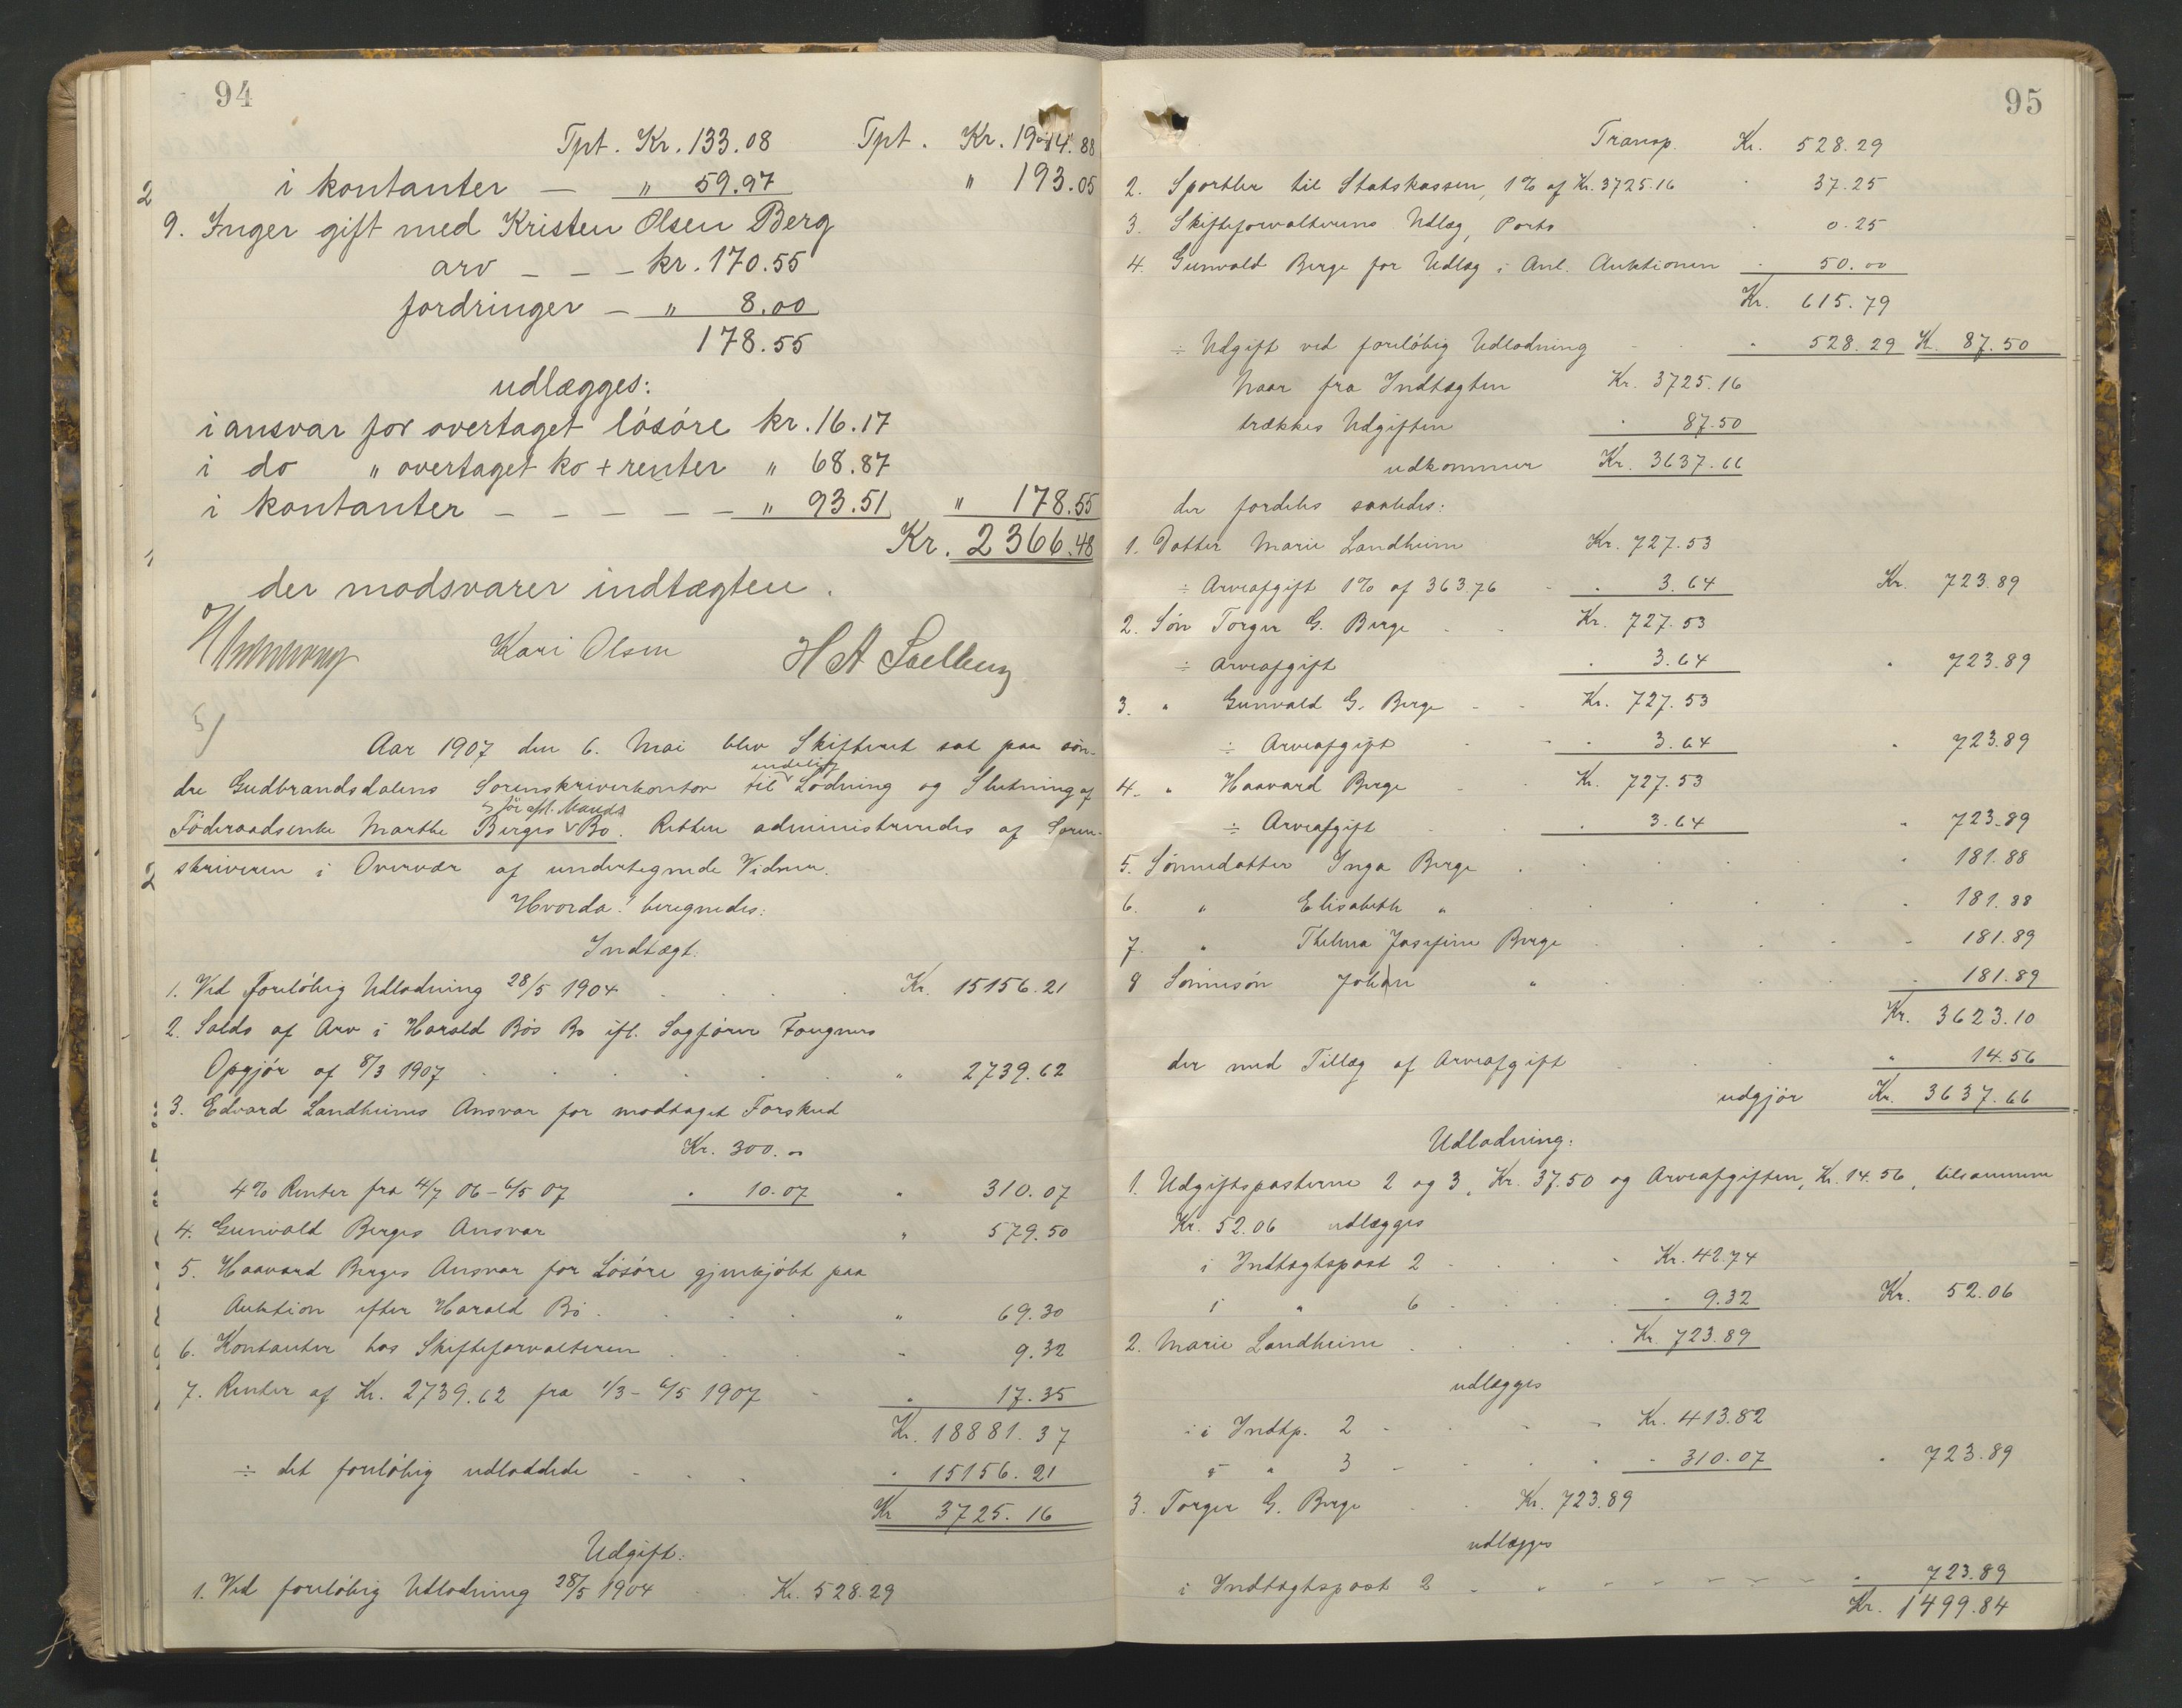 94
Tpt. Kr. 133.08 Tpt. Kr. 1994.88
i kontanter — " 59.97 " 193.05
9. Inger gift med Kristen Olsen Berg
arv – – – kr. 170.55
fordringer – " 8.00
178.55
udlægges:
i ansvar for overtaget løsøre kr. 16.17
i do " overtaget ko + renter " 68.87
i kontanter – – – – – " 93.51 " 178.55
Kr. 2366.48
der modsvarer indtægten.
Kari Olsen
5)
Aar 1907 den 6. Mai blev Skifteret sat paa søn-
dre Gudbrandsdalens Sorenskriverkontor til endelig Lodning og Slutning af
Føderaadsenke Marthe Berges & før afd. Mands Bo. Retten administreredes af Soren-
skriveren i Overvær af undertegnede Vidner.
Hvorda: beregnedes:
Indtægt:
1. Ved foreløbig Udlodning 28/5 1904 Kr. 15156.21
2. Saldo af Arv i Harald Bøs Bo ifl. Sagfører Fougners
Opgjør af 8/3 1907 " 2739.62
3. Edvard Landheims Ansvar for modtaget Forskud
Kr. 300.00
4% Renter fra 4/7 06 – 6/5 07 " 10.07 " 310.07
4. Gunvald Berges Ansvar " 579.50
5. Haavard Berges Ansvar for Løsøre gjenkjøbt paa
Auktion efter Harald Bø " 69.30
6. Kontanter hos Skifteforvalteren " 9.32
7. Renter af Kr. 2739.62 fra 1/3 – 6/5 1907 " 17.35
Kr. 18881.37
÷ det foreløbig udloddede " 15156.21
Kr 3725.16
Udgift:
1. Ved foreløbig Udlodning 28/5 1904 Kr. 528.29
95
Transp. Kr. 528.29
2. Sportler til Statskassen, 1% af Kr. 3725.16 " 37.25
3. Skifteforvalterens Udlæg, Porto " 0.25
4. Gunvald Berge for Udlæg i Anl. Auktionen " 50.00
Kr. 615.79
÷ Udgift ved foreløbig Udlodning " 528.29 K. 87.50
Naar fra Indtægten Kr. 3725.16
trækkes Udgiften " 87.50
udkommer Kr. 3637.66
der fordeles saaledes:
1. Datter Marie Landheim Kr. 727.53
÷ Arveafgift 1% af 363.76 " 3.64 Kr. 723.89
2. Søn Torger G. Berge Kr. 727.53
÷ Arveafgift " 3.64 " 723.89
3. " Gunvald G. Berge Kr. 727.53
÷ Arveafgift " 3.64 " 723.89
4. " Haavard Berge Kr. 727.53
÷ Arveafgift " 3.64 " 723.89
5. Sønnedatter Inga Berge " 181.88
6. " Elisabeth " " 181.88
7. " Thelma Josefine Berge " 181.89
8 Sønnesøn Johan " " 181.89
Kr. 3623.10
der med Tillæg af Arveafgift " 14.56
udgjør Kr. 3637.66
Udlodning:
1. Udgiftsposterne 2 og 3, Kr. 37.50 og Arveafgiften, Kr. 14.56, tilsammen
Kr. 52.06 udlægges
i Indtægtspost 2 Kr. 42.74
i " 6 " 9.32 Kr. 52.06
2. Marie Landheim Kr. 723.89
udlægges
i Indtp. 2 Kr. 413.82
i " 3 " 310.07 " 723.89
3. Torger G. Berge Kr. 723.89
udlægges
i Indtægtspost 2 " 723.89
Kr. 1499.84